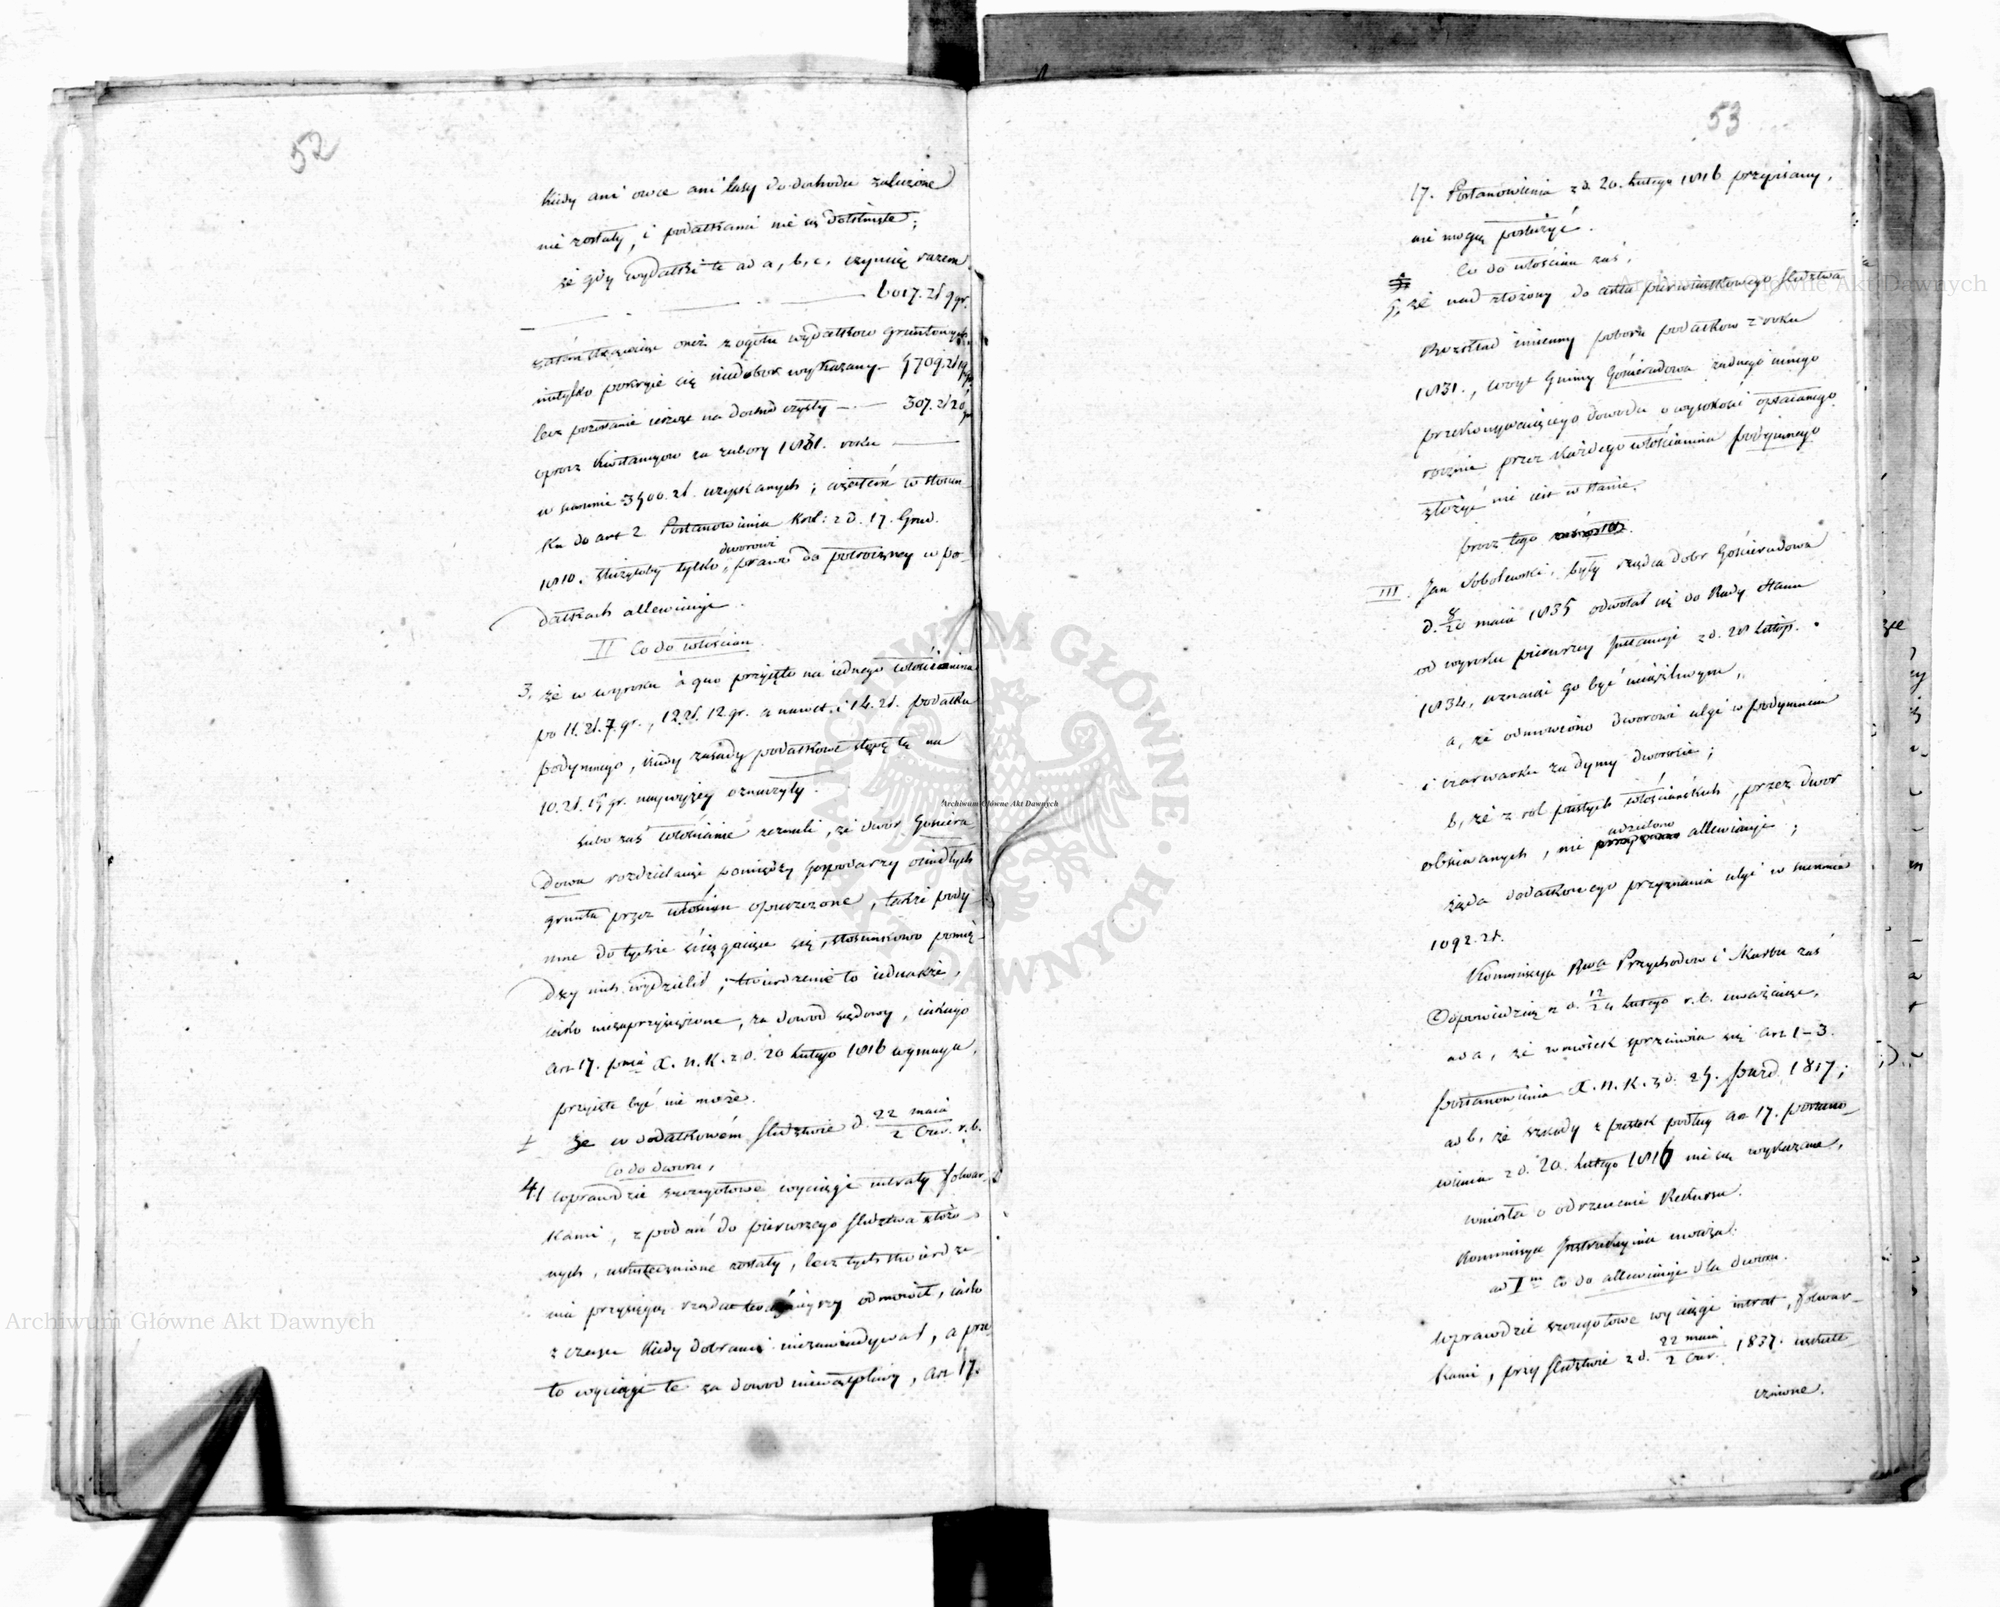 52
kiedy ani owce ani lasy do dochodu zaliczone
nie zostały, i podatkami nie są dotknięte;
że gdy wydatki te ad a, b, c, czynią razem
6017. zł 9 gr.
zatém strąciwszy onéż z ogółu wydatków gruntowych
nietylko pokryje się niedobór wykazany 5709. zł 19 gr
lecz pozostanie jeszcze na dochód czysty — 307. zł 20
oprócz kwitancyów za zabory 1831. roku
w summie 3500. zł. uzyskanych; ażatém w stosun
ku do art 2. Postanowienia Król: z d. 17. Grud.
dworowi
1810. służyłoby tylko prawo do potrąceney w po-
datkach allewiacyi.
II Co do włościan
3. że w wyroku à quo przyjęto na iednego włościanina
po 11. zł. 7 gr., 12 zł. 12. gr. a nawet i 14. zł. podatku
podymnego, kiedy zasady podatkowe stopę tę na
10. zł. 15 gr. naywyżey oznaczyły.
Lubo zaś włościanie zeznali, że dwór Gościera
dowa rozdzielając pomiędzy gospodarzy osiadłych
grunta przez włościan opuszczone, także pody
mne do tychże ściągające się, stosunkowo pomię-
dzy nich wydzielił; twierdzenie to jednakże,
iako niezaprzysiężone, za dowód sądowy, iakiego
Art 17. pnia X. N. K. z d. 20 Lutego 1816 wymaga,
przyięte być nie może.
że w dodatkowém śledztwie d. 22 maia / 2 Czer. r. b.
Co do dworu,
4.) wprawdzie szczegółowe wyciągi intraty folwar-
kami, z podań do pierwszego śledztwa złożo-
nych, uskutecznione zostały, lecz tych stwierdze-
nia przysięgą rządca teraźnieyszy odmówił, iako
z czasu kiedy dobrami niezawiadywał, a prze
to wyciągi te za dowód niewątpliwy, Art 17.
53
17. Postanowienia z d. 20. Lutego 1816 przepisany,
nie mogą posłużyć.
Co do włościan zaś,
5, że nad złożony do akta pierwiastkowego śledztwa
Rozkład imienny poboru podatków z roku
1831., Wóyt Gminy Gościeradowa żadnego innego
przekonywaiącego dowodu o wysokości opłacanego
rocznie przez każdego włościanina podymnego
złożyć nie iest w stanie.
prócz tego
III. Jan Sobolewski, były rządca dóbr Gościeradowa
d. 8/20 maia 1835 odwołał się do Rady Stanu
od wyroku pierwszey Instancyi z d. 28 Listop.
1834, uznaiąc go być uciążliwym,
a, że odmówiono dworowi ulgi w podymném
i szarwarku za dymy dworskie;
b, że z ról pustych włościańskich, przez dwór
udzielono
obsiewanych, nie allewiacyi;
żąda dodatkowego przyznania ulgi w summie
1092. zł.
Kommissya Rwa Przychodów i Skarbu zaś
Odpowiedzią z d. 12/24 Lutego r. b. uważaiąc,
ad a, że wniosek sprzeciwia się Art 1–3.
postanowienia X. N. K. z d. 25. Paźd. 1817;
ad b, że szkody z pustek podług Art 17. postano-
wienia z d. 20. Lutego 1816 nie są wykazane,
wniosła o odrzucenie Rekursu.
Kommissya Instrukcyina uważa:
ad Im Co do allewiacyi dla dworu.
Wprawdzie szczegółowe wyciągi intrat, folwar-
kami, przy śledztwie z d. 22 maia / 2 Czer. 1837. uskute-
cznione.